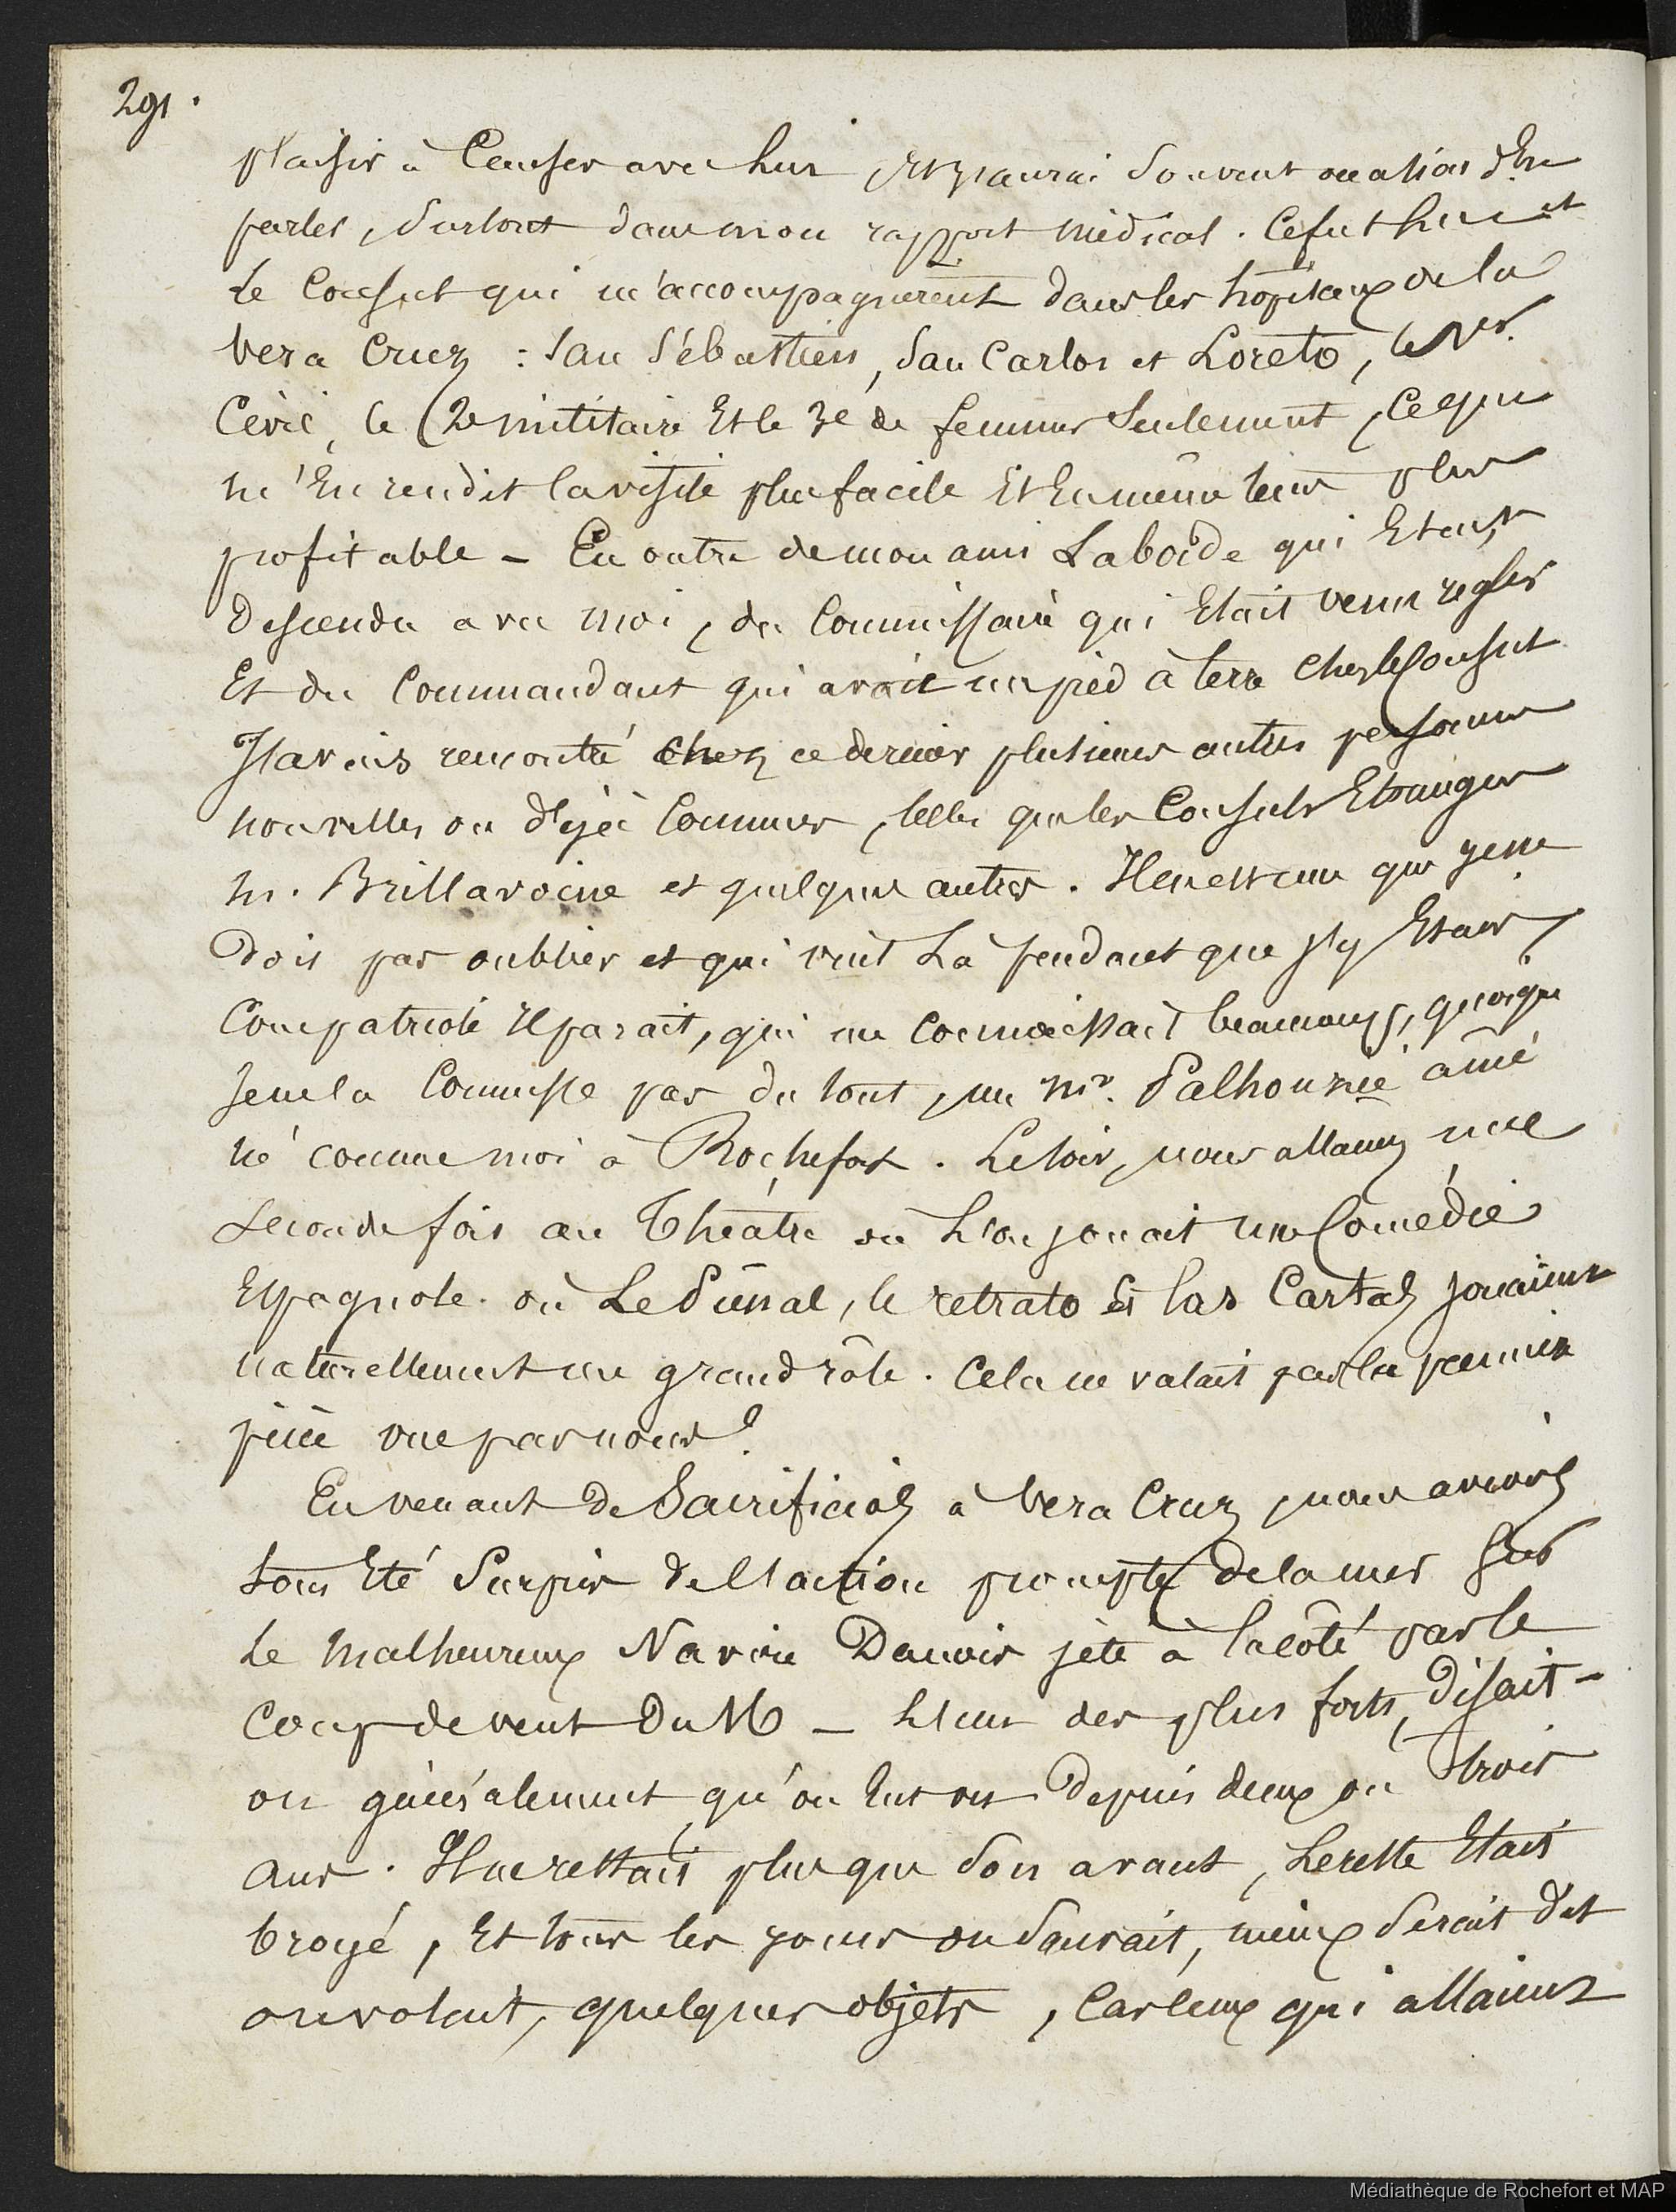 291.
plaisir à Causer avec lui, Et j'aurai Souvent occasion d'En
parler, Surtout dans mon rapport médical. Ce fut lui et
le Consul qui m'accompagnèrent dans les hôpitaux de la
Vera Cruz : San Sébastien, San Carlos et Loreto, le 1er.
Civil, le 2e militaire Et le 3e de femmes Seulement, Ce qui
m'En rendit la visite plus facile Et En même tems plus
profitable – En outre de mon ami Laborde qui Etait
descendu avec moi, du Commissaire qui Etait venu régler
Et du Commandant qui avait un pied à terre Chez le Consul
J'avais rencontré chez ce dernier plusieurs autres personnes
nouvelles ou déjà Connues, telles que les Consuls Etrangers
M. Brillavoine et quelques autres. Il en est un que je ne
dois pas oublier et qui vint Là pendant que j'y Etais,
Compatriote Il parait, qui me Connaissait beaucoup, quoique
Je ne le Connusse pas du tout, un Mr. Palhournié ainé
né comme moi à Rochefort. Le Soir, nous allames une
Seconde fois au Théâtre où L'on jouait une Comédie
Espagnole. où Le Puñal, le retrato Et las Cartas jouaient
naturellement un grand rôle. Cela ne valait pas la première
pièce vue par nous !
En venant de Sacrificios à Vera Cruz, nous avions
tous Eté Surpris de l'action prompte de la mer Sur
le malheureux Navire Danois jeté à la côte par le
Coup de vent du 16 – L'un des plus forts, disait-
on généralement, qu'on Eut vus Depuis deux ou trois
ans. Il ne restait plus que Son avant, Le reste Etait
broyé, Et tous les jours on Sauvait, mieux Serait dit
on volait, quelques objets, Car ceux qui allaient
Médiathèque de Rochefort et MAP